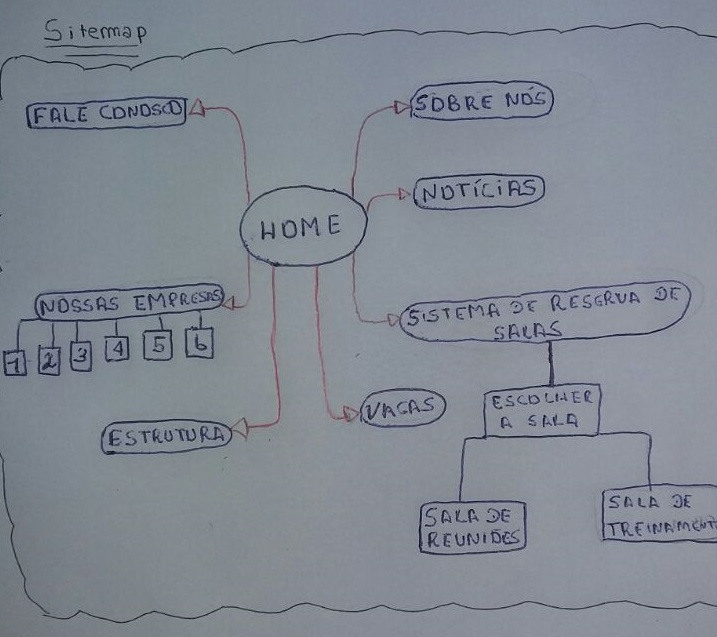 Sitemap
FALE CONOSCO
SOBRE NÓS
NOTÍCIAS
HOME
NOSSAS EMPRESAS
1 2 3 4 5 6
SISTEMA DE RESERVA DE
SALAS
VAGAS
ESTRUTURA
ESCOLHER
A SALA
SALA DE
REUNIÕES
SALA DE
TREINAMENTO